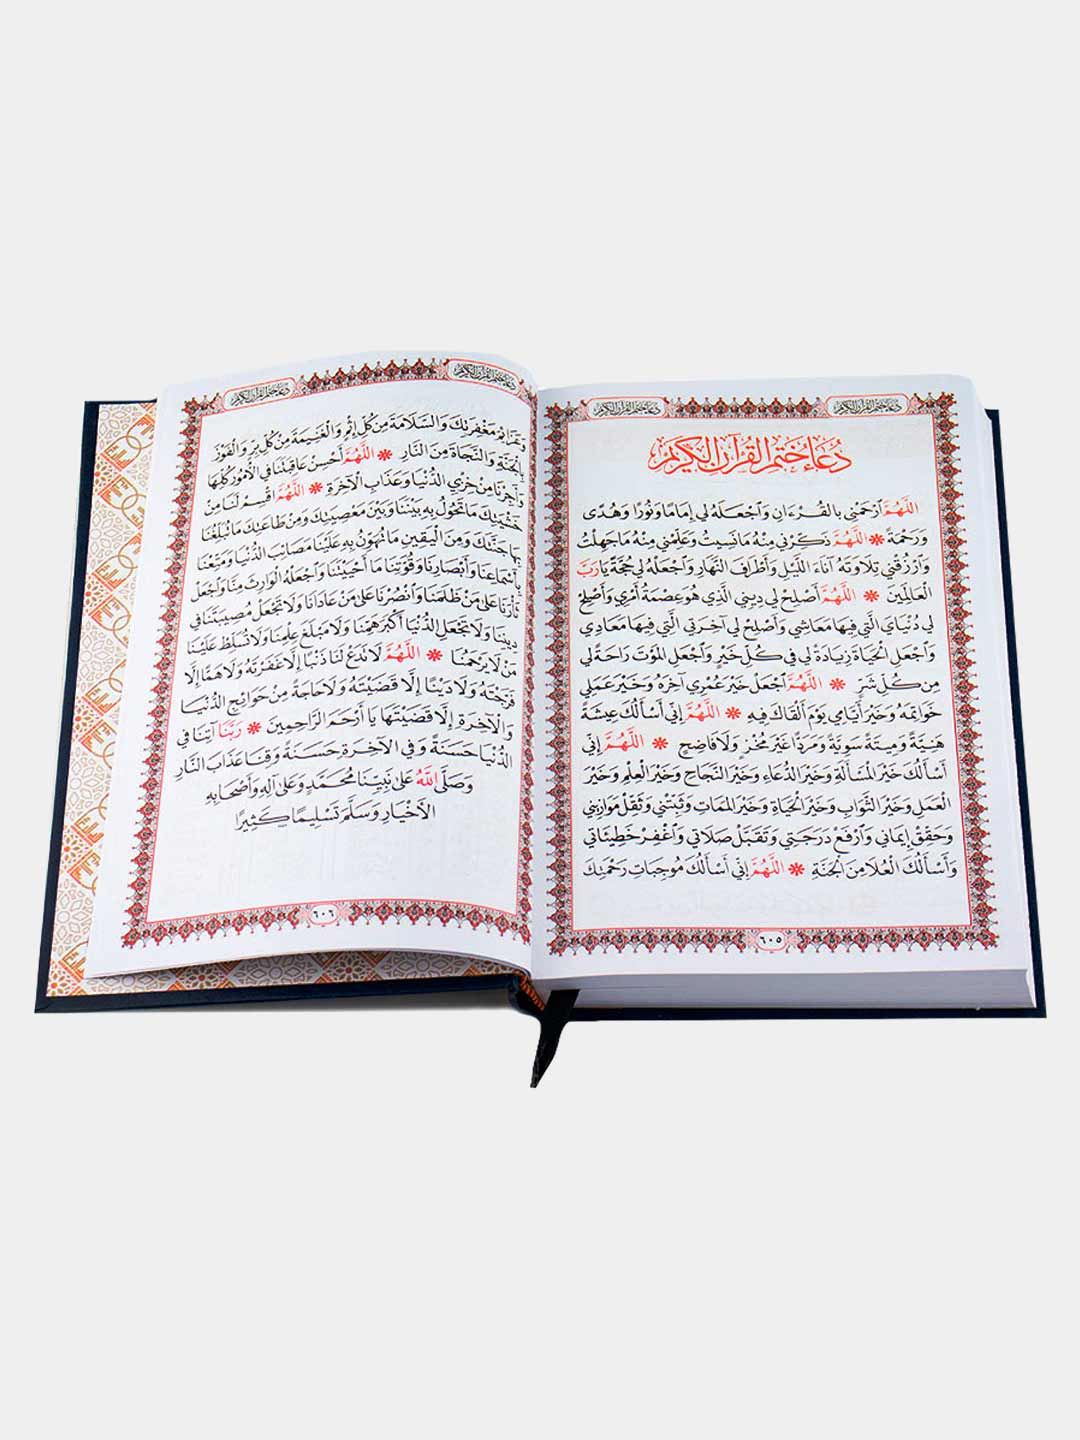 دُعَاءُ خَتْمِ القُرْآنِ الكَرِيمِ
دُعَاءُ خَتْمِ القُرْآنِ الكَرِيمِ
دُعَاءُ خَتْمِ القُرْآنِ الكَرِيمِ
اللَّهُمَّ ٱرْحَمْنِي بِالقُرْءَانِ وَٱجْعَلهُ لِي إِمَامًا وَنُورًا وَهُدًى
وَرَحْمَةً * اللَّهُمَّ ذَكِّرْنِي مِنْهُ مَانَسِيتُ وَعَلِّمْنِي مِنْهُ مَاجَهِلْتُ
وَٱرْزُقْنِي تِلَاوَتَهُ آنَاءَ اللَّيْلِ وَأَطْرَافَ النَّهَارِ وَٱجْعَلْهُ لِي حُجَّةً يَارَبَّ
العَالَمِينَ * اللَّهُمَّ أَصْلِحْ لِي دِينِي الَّذِي هُوَ عِصْمَةُ أَمْرِي وَأَصْلِحْ
لِي دُنْيَايَ الَّتِي فِيهَا مَعَاشِي وَأَصْلِحْ لِي آخِرَتِي الَّتِي فِيهَا مَعَادِي
وَٱجْعَلِ الحَيَاةَ زِيَادَةً لِي فِي كُلِّ خَيْرٍ وَٱجْعَلِ المَوْتَ رَاحَةً لِي
مِن كُلِّ شَرٍّ * اللَّهُمَّ ٱجْعَلْ خَيْرَ عُمْرِي آخِرَهُ وَخَيْرَ عَمَلِي
خَوَاتِمَهُ وَخَيْرَ أَيَّامِي يَوْمَ أَلْقَاكَ فِيهِ * اللَّهُمَّ إِنِّي أَسْأَلُكَ عِيشَةً
هَنِيَّةً وَمِيتَةً سَوِيَّةً وَمَرَدًّا غَيْرَ مُخْزٍ وَلَا فَاضِحٍ * اللَّهُمَّ إِنِّي
أَسْأَلُكَ خَيْرَ المَسْأَلَةِ وَخَيْرَ الدُّعَاءِ وَخَيْرَ النَّجَاحِ وَخَيْرَ العِلْمِ وَخَيْرَ
العَمَلِ وَخَيْرَ الثَّوَابِ وَخَيْرَ الحَيَاةِ وَخَيْرَ المَمَاتِ وَثَبِّتْنِي وَثَقِّلْ مَوَازِينِي
وَحَقِّقْ إِيمَانِي وَٱرْفَعْ دَرَجَتِي وَتَقَبَّلْ صَلَاتِي وَٱغْفِرْ خَطِيئَاتِي
وَأَسْأَلُكَ العُلَا مِنَ الجَنَّةِ * اللَّهُمَّ إِنِّي أَسْأَلُكَ مُوجِبَاتِ رَحْمَتِكَ
٦٠٥
دُعَاءُ خَتْمِ القُرْآنِ الكَرِيمِ
دُعَاءُ خَتْمِ القُرْآنِ الكَرِيمِ
وَعَزَائِمَ مَغْفِرَتِكَ وَالسَّلَامَةَ مِنْ كُلِّ إِثْمٍ وَالْغَنِيمَةَ مِنْ كُلِّ بِرٍّ وَالْفَوْزَ
بِالْجَنَّةِ وَالنَّجَاةَ مِنَ النَّارِ * اللَّهُمَّ أَحْسِنْ عَاقِبَتَنَا فِي الأُمُورِ كُلِّهَا
وَأَجِرْنَا مِنْ خِزْيِ الدُّنْيَا وَعَذَابِ الآخِرَةِ * اللَّهُمَّ اقْسِمْ لَنَا مِنْ
خَشْيَتِكَ مَا تَحُولُ بِهِ بَيْنَنَا وَبَيْنَ مَعْصِيَتِكَ وَمِنْ طَاعَتِكَ مَا تُبَلِّغُنَا
بِهَا جَنَّتَكَ وَمِنَ الْيَقِينِ مَا تُهَوِّنُ بِهِ عَلَيْنَا مَصَائِبَ الدُّنْيَا وَمَتِّعْنَا
بِأَسْمَاعِنَا وَأَبْصَارِنَا وَقُوَّتِنَا مَا أَحْيَيْتَنَا وَاجْعَلْهُ الْوَارِثَ مِنَّا وَاجْعَلْ
ثَأْرَنَا عَلَى مَنْ ظَلَمَنَا وَانْصُرْنَا عَلَى مَنْ عَادَانَا وَلَا تَجْعَلْ مُصِيبَتَنَا فِي
دِينِنَا وَلَا تَجْعَلِ الدُّنْيَا أَكْبَرَ هَمِّنَا وَلَا مَبْلَغَ عِلْمِنَا وَلَا تُسَلِّطْ عَلَيْنَا
مَنْ لَا يَرْحَمُنَا * اللَّهُمَّ لَا تَدَعْ لَنَا ذَنْبًا إِلَّا غَفَرْتَهُ وَلَا هَمًّا إِلَّا
فَرَّجْتَهُ وَلَا دَيْنًا إِلَّا قَضَيْتَهُ وَلَا حَاجَةً مِنْ حَوَائِجِ الدُّنْيَا
وَالْآخِرَةِ إِلَّا قَضَيْتَهَا يَا أَرْحَمَ الرَّاحِمِينَ * رَبَّنَا آتِنَا فِي
الدُّنْيَا حَسَنَةً وَفِي الْآخِرَةِ حَسَنَةً وَقِنَا عَذَابَ النَّارِ
وَصَلَّى اللَّهُ عَلَى نَبِيِّنَا مُحَمَّدٍ وَعَلَى آلِهِ وَأَصْحَابِهِ
الأَخْيَارِ وَسَلَّمَ تَسْلِيمًا كَثِيرًا
٦٠٦